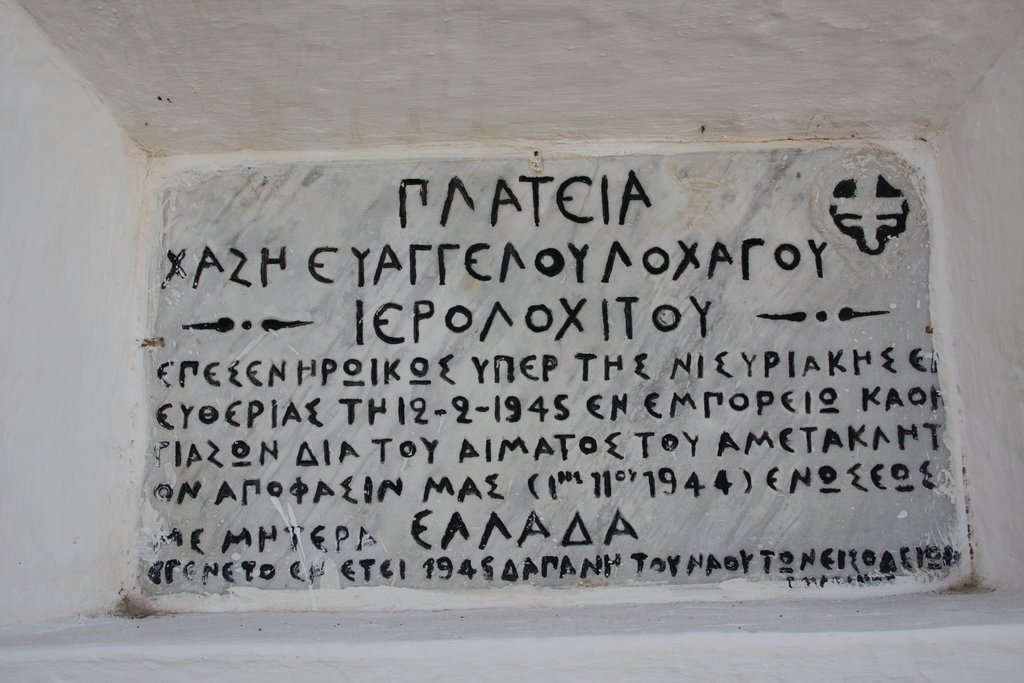 ΠΛΑΤΕΙΑ
ΧΑΖΗ ΕΥΑΓΓΕΛΟΥ ΛΟΧΑΓΟΥ
ΙΕΡΟΛΟΧΙΤΟΥ
ΕΠΕΣΕΝ ΗΡΩΙΚΩΣ ΥΠΕΡ ΤΗΣ ΝΙΣΥΡΙΑΚΗΣ ΕΛ
ΕΥΘΕΡΙΑΣ ΤΗ 12-2-1945 ΕΝ ΕΜΠΟΡΕΙΩ ΚΑΘΟΙ
ΡΙΑΖΩΝ ΔΙΑ ΤΟΥ ΑΙΜΑΤΟΣ ΤΟΥ ΑΜΕΤΑΚΛΗΤ
ΟΝ ΑΠΟΦΑΣΙΝ ΜΑΣ (1ης 11ου 1944) ΕΝΩΣΕΩΣ
ΜΕ ΜΗΤΕΡΑ ΕΛΛΑΔΑ
ΕΓΕΝΕΤΟ ΕΝ ΕΤΕΙ 1945 ΔΑΠΑΝΗ ΤΟΥ ΝΑΟΥ ΤΩΝ ΕΙΣΟΔΕΙΩΝ